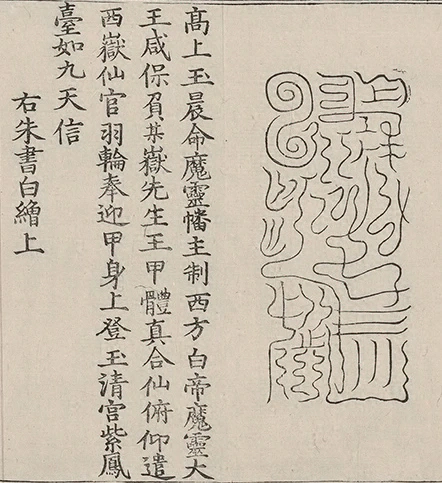 高上玉晨命魔靈幡主制西方白帝魔靈大
王咸保負某嶽先生王甲體真合仙俯仰遣
西嶽仙官羽輪奉迎甲身上登玉清宮紫鳳
臺如九天信
右朱書白繒上